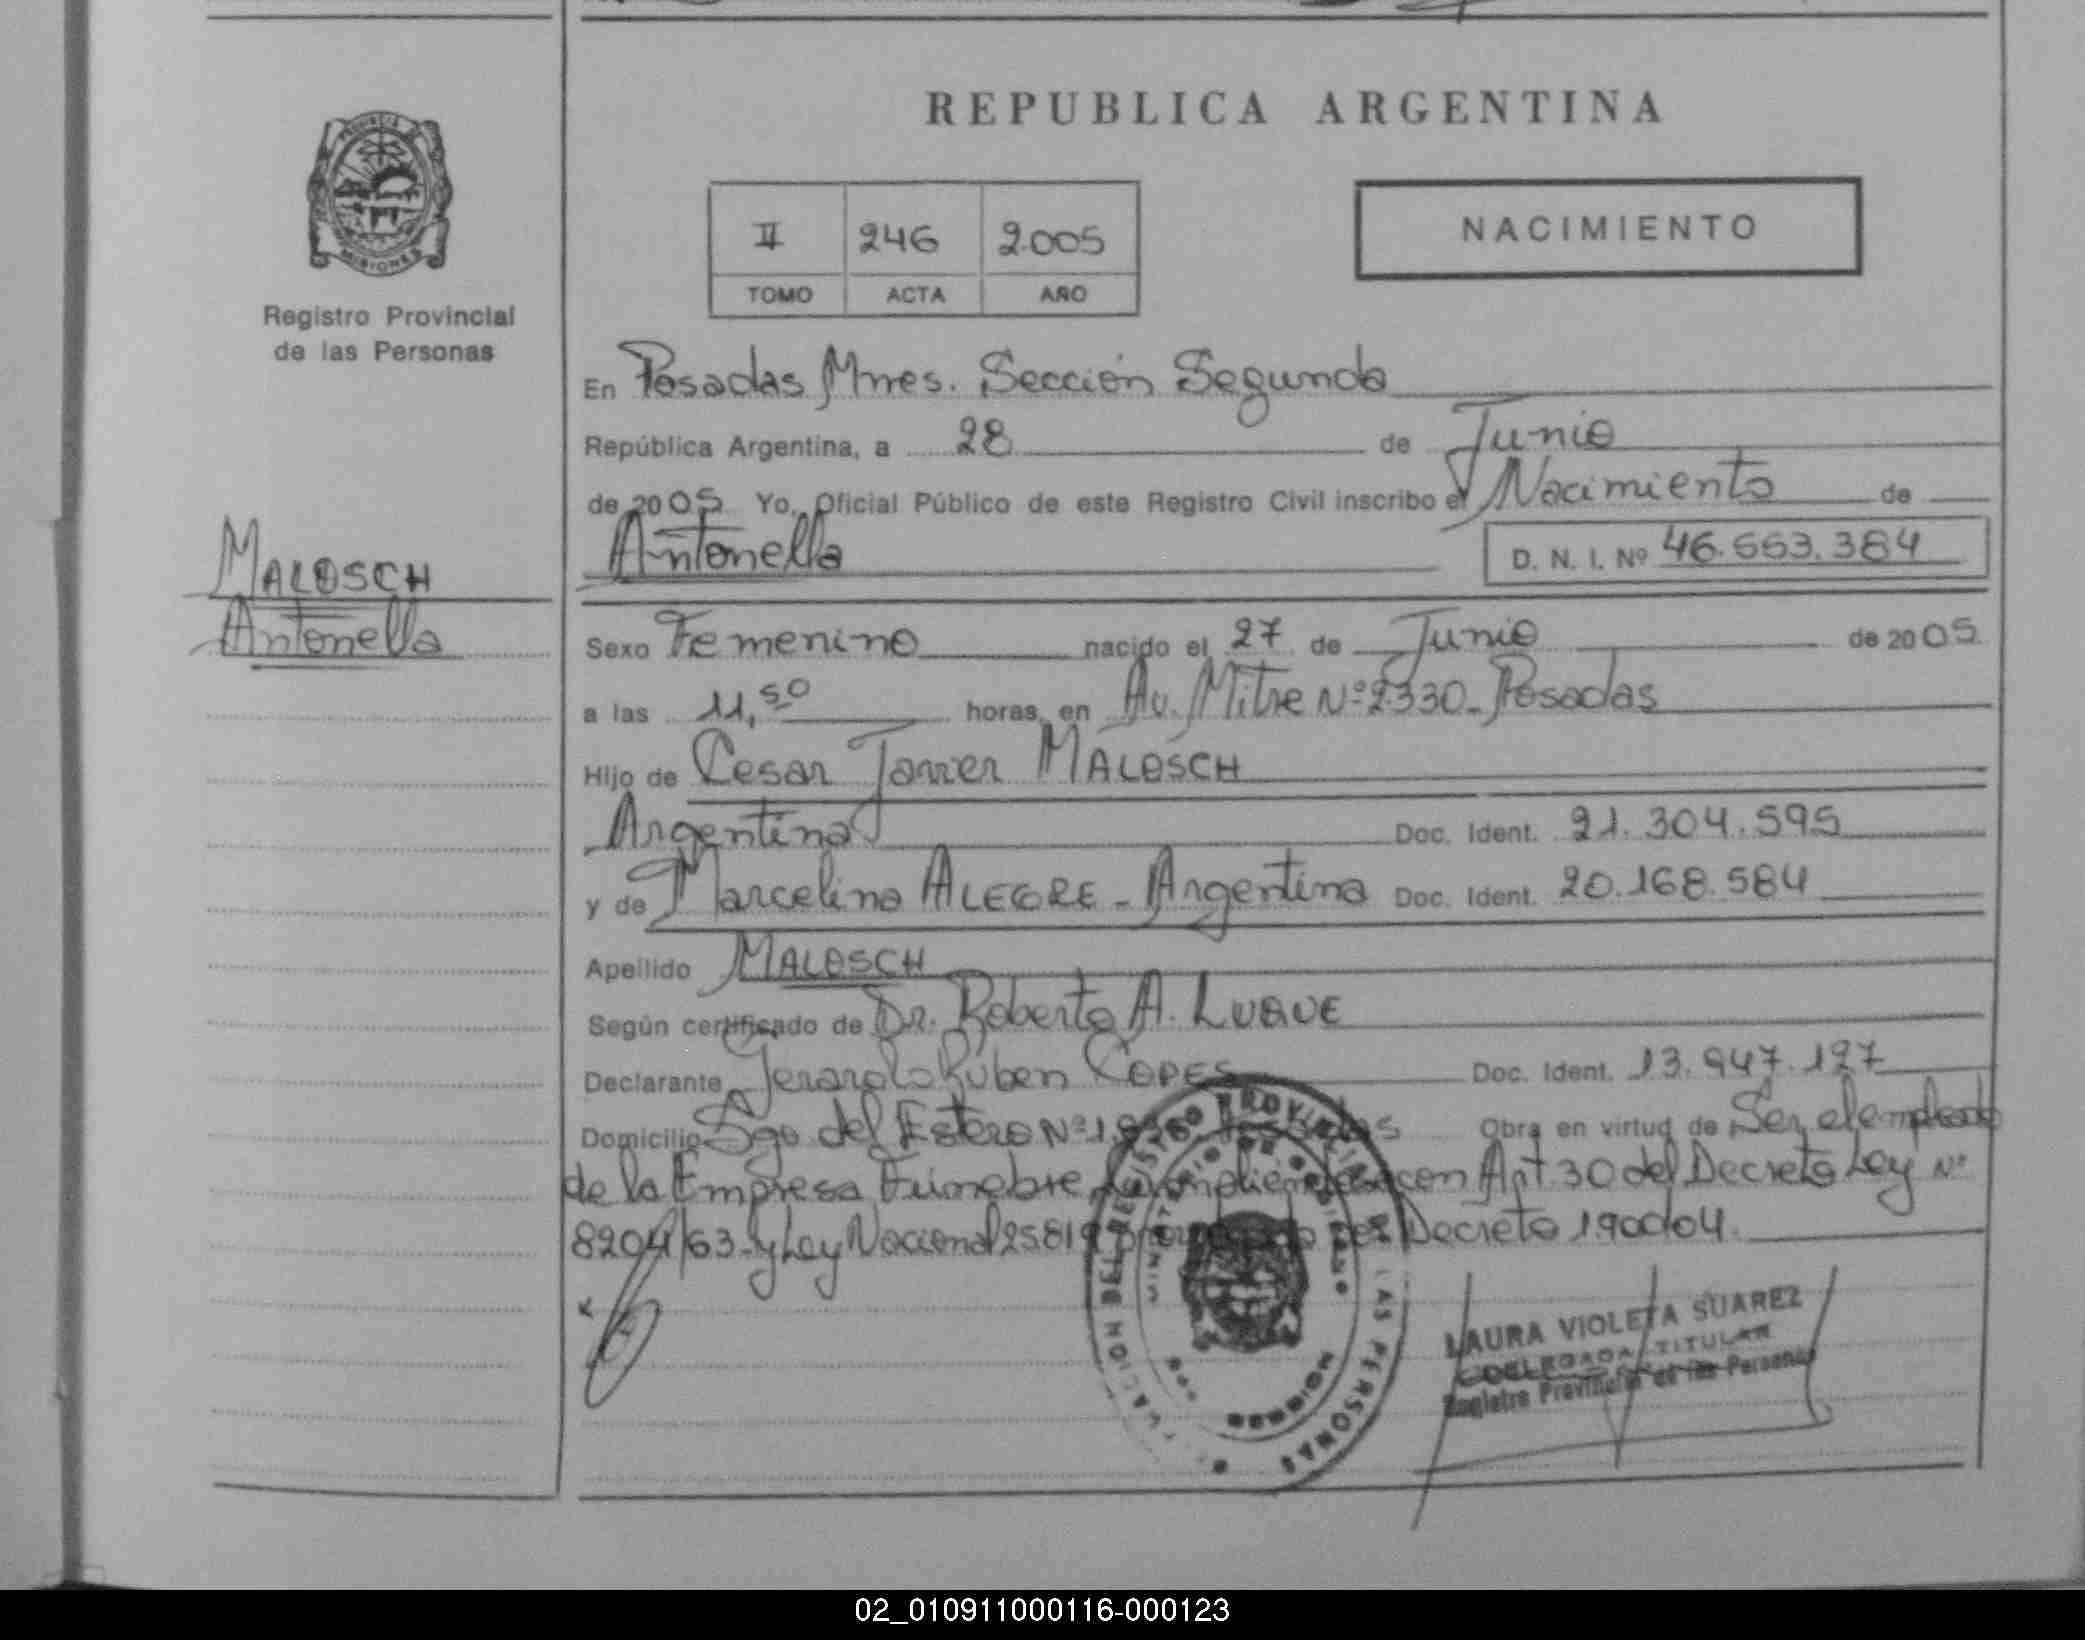 REPUBLICA ARGENTINA
PROVINCIA DE
MISIONES
Registro Provincial
de las Personas
II 246 2.005
TOMO ACTA AÑO
NACIMIENTO
En Posadas Mnes. Sección Segunda
República Argentina, a 28 de Junio
de 2005 Yo, Oficial Público de este Registro Civil inscribo el Nacimiento de
Antonella D. N. I. Nº 46.553.384
MALOSCH
Antonella
Sexo Femenino nacido el 27 de Junio de 2005.
a las 11,50 horas, en Av. Mitre Nº 2.330_ Posadas
Hijo de Cesar Javier MALOSCH
Argentina Doc. Ident. 21.304.595
y de Marcelina ALEGRE - Argentina Doc. Ident. 20.168.584
Apellido MALOSCH
Según certificado de Dr. Roberto A. LUQUE
Declarante Gerardo Rúben COPES Doc. Ident. 13.947.127
Domicilio Sgo del Estero Nº Obra en virtud de Ser el empleado
de la Empresa Fúnebre con Art. 30 del Decreto Ley Nº
8204/63_y Ley Nacional 25819 por Decreto 1.90004.
DEL REGISTRO PROVINCIAL DE LAS PERSONAS
MINISTERIO DE GOBIERNO
MISIONES
LAURA VIOLETA SUAREZ
DELEGADA TITULAR
Registro Provincial de las Personas
02_010911000116-000123